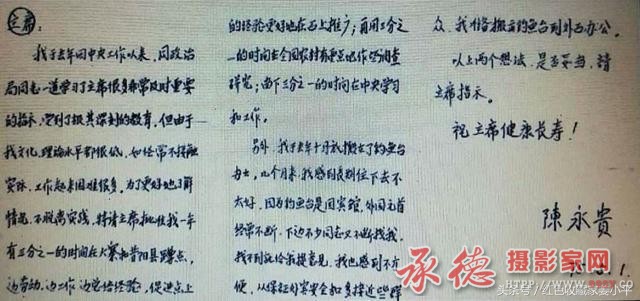 主席：
我于去年回中央工作以来，同政治
局同志一道学习了主席很多非常及时重要
的指示，受到了极其深刻的教育，但由于
我文化、理论水平都很低，如经常不接触
实际，工作起来困难很多，为了更好地了解
情况，不脱离实践，特请主席批准我一年
有三分之一的时间在大寨和昔阳县蹲点，
边劳动、边工作、边总结经验，促进点上
的经验更好地在面上推广；再用三分之
一的时间在全国农村有重点地作些调查
研究；留下三分之一的时间在中央学习
和工作。
另外，我于去年十月就搬出了钓鱼台
办公，几个月来，我感到长期住下去不
太好，因为钓鱼台是国宾馆，外国元首
经常不断，下边不少同志又不断找我，
找不到就给我提意见，我也感到不方
便，从保证外宾安全和多接近些群
众，我准备搬出钓鱼台到外面办公。
以上两个想法，是否妥当，请
主席指示。
祝主席健康长寿！
陈永贵
75.5.1.
承德摄影家网
搜狐号/红色收藏家姜小平